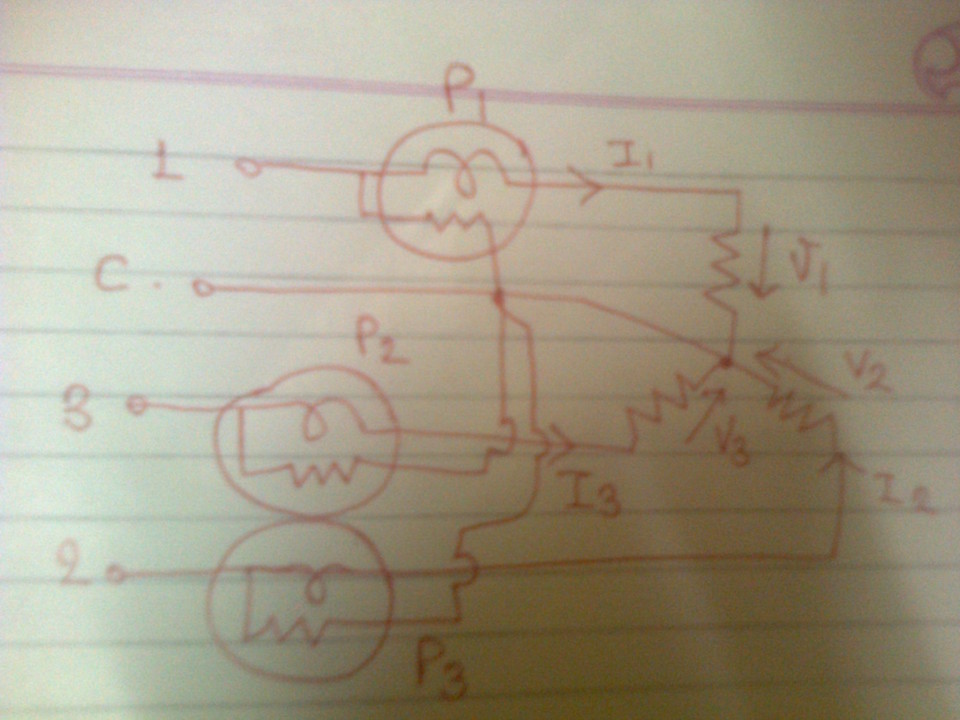 P1
1
I1
C.
V1
P2
V2
3
V3
I3
I2
2
P3